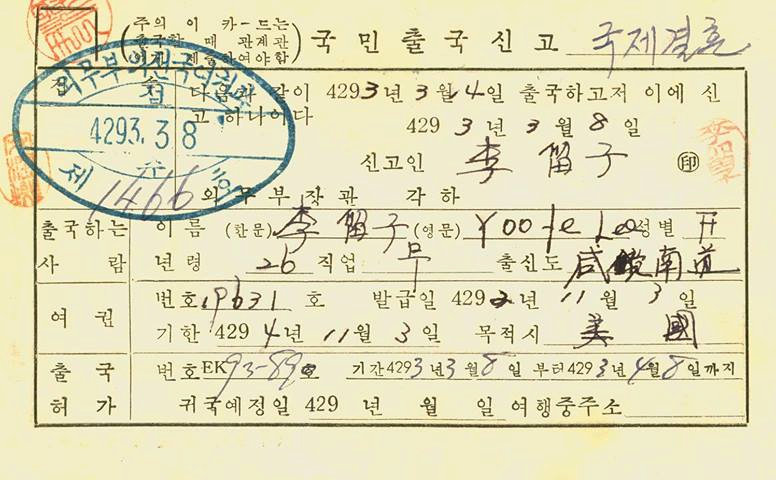 (주의 이 카-드는
출국할 때 관계관
에게 제출하여야함) 국민출국신고 국제결혼
다음과 같이 4293年 3月 14일 출국하고저 이에 신
고하나이다 4293年 3月 8일
신고인 李留子 ㊞
외무부장관 각하
접수
4293. 3. 8
제 1466 호
출국하는 사람 이름 (한문) 李留子 (영문) Yoo Ja Lee 성별
년령 26 직업 무 출신도 咸鏡南道
여권 번호 19631 호 발급일 4292년 11월 3일
기한 4294년 11월 3일 목적시 美國
출국 허가 번호 EK 93-890 호 기간 4293년 3월 8일 부터 4293년 4월 8일까지
귀국예정일 429 년 월 일 여행중주소